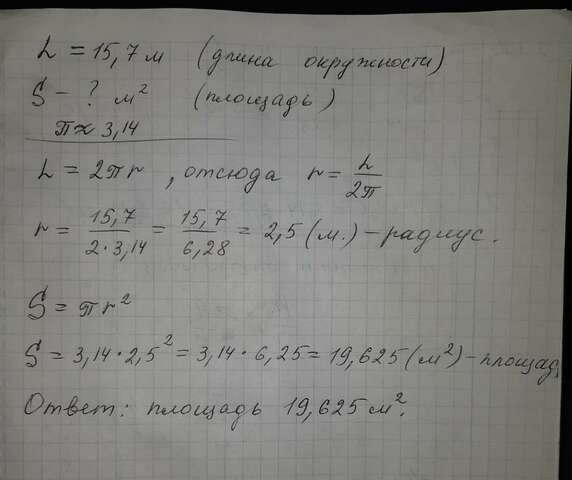 L = 15,7 м (длина окружности)
S - ? м² (площадь)
π ≈ 3,14
L = 2πr, отсюда r = L/2π
r = 15,7/2·3,14 = 15,7/6,28 = 2,5 (м.) - радиус.
S = πr²
S = 3,14·2,5² = 3,14·6,25 = 19,625 (м²) - площад
Ответ: площадь 19,625 м².